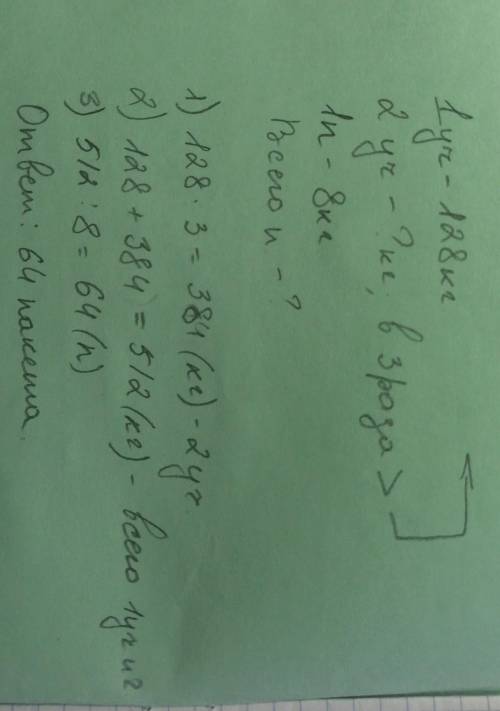 1 уч - 128 кг
2 уч - ? кг, в 3 раза >
1п - 8кг
Всего п - ?
1) 128 · 3 = 384 (кг) - 2 уч
2) 128 + 384 = 512 (кг) - всего 1уч и 2
3) 512 : 8 = 64 (п)
Ответ: 64 пакета.